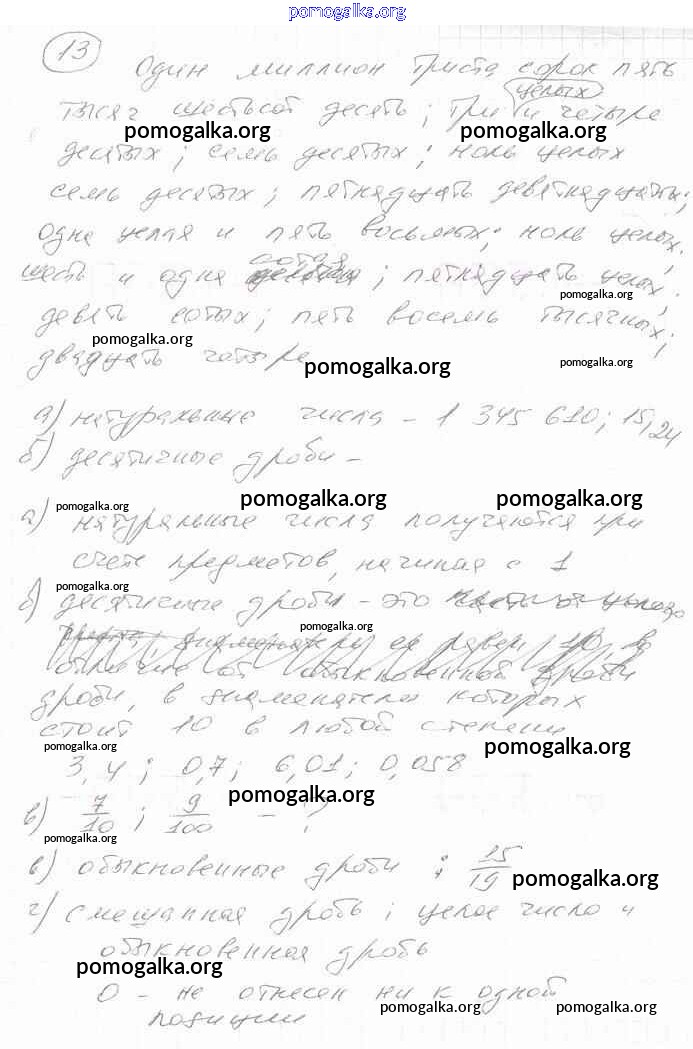 pomogalka.org
13
Один миллион триста сорок пять
целых
тысяч шестьсот десять; три и четыре
pomogalka.org pomogalka.org
десятых; семь десятых; ноль целых
семь десятых; пятнадцать девятнадцатых;
одна целая и пять восьмых; ноль целых;
сотая
шесть и одна; пятнадцать целых;
pomogalka.org
девять сотых; пять восемь тысячных;
pomogalka.org
двадцать четыре
pomogalka.org pomogalka.org
а) натуральные числа - 1 345 610; 15, 24
б) десятичные дроби -
pomogalka.org pomogalka.org pomogalka.org
а) натуральные числа получаются при
счете предметов, начиная с 1
pomogalka.org
б) десятичные дроби - это
pomogalka.org
знаменатель
отличие от обыкновенной дроби
дроби, в знаменателе которых
стоит 10 в любой степени
pomogalka.org pomogalka.org
3,4; 0,7; 6,01; 0,058
pomogalka.org
в) 7/10; 9/100 - ?
pomogalka.org
в) обыкновенные дроби; 15/19
pomogalka.org
г) смешанная дробь; целое число и
обыкновенная дробь
pomogalka.org
0 - не отнесен ни к одной
pomogalka.org pomogalka.org
позиции